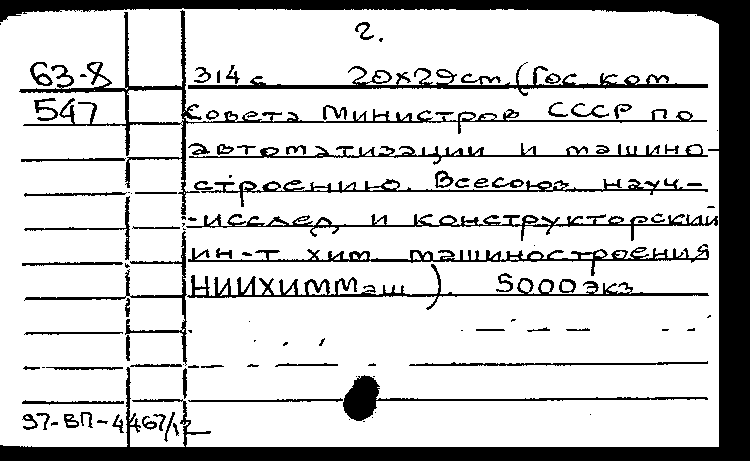 2.
63-8 314 с. 20х29см. (Гос. ком.
547 Совета Министров СССР по
автоматизации и машино-
строению. Всесоюз. науч.-
-исслед. и конструкторский
ин-т хим. машиностроения
НИИХИММаш). 5000 экз.
97-ВП-4467/12